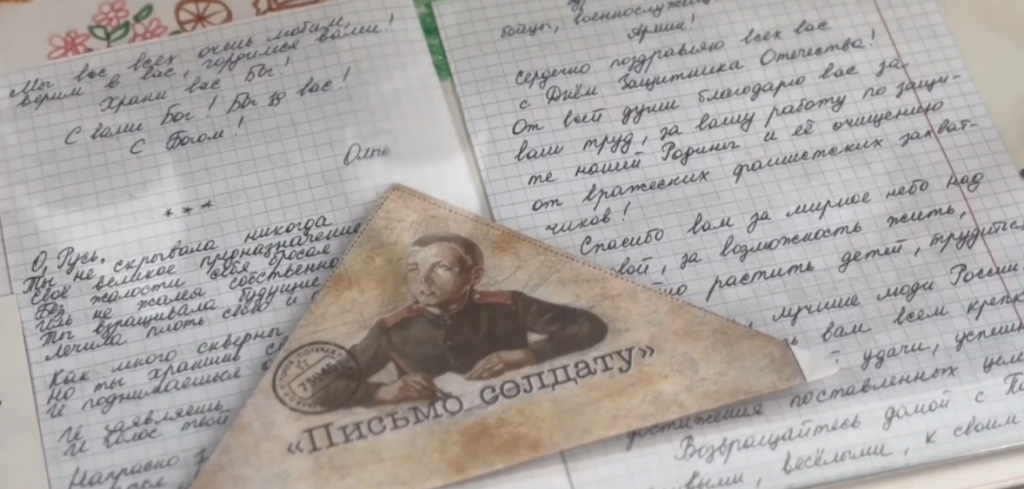 Мы вас всех очень любим,
верим в вас, гордимся вами!
Храни вас Бог!
С вами Бог! Бог за вас!
С Богом!
* * *
О, Русь,
Ты не скрывала никогда
Своё великое предназначение
Без жалости себя
не жалея собственно
Ты взращивала будущие
лечила плоть свою и
Как много скверны
но ты хранишь
И поднимаешься
И заявляешь
И голос твой
Напрасно
«Письмо солдату»
бойцы, военнослужащие
Армии!
Сердечно поздравляю всех вас
с Днём Защитника Отечества!
От всей души благодарю вас за
ваш труд, за вашу работу по защи-
те нашей Родины и её очищению
от вражеских фашистских захват-
чиков!
Спасибо вам за мирное небо над
за возможность жить,
растить детей, трудиться
лучшие люди России
вам всем крепко
удачи, успеш
достижения поставленных целе
Возвращайтесь домой с
весёлыми, к своим